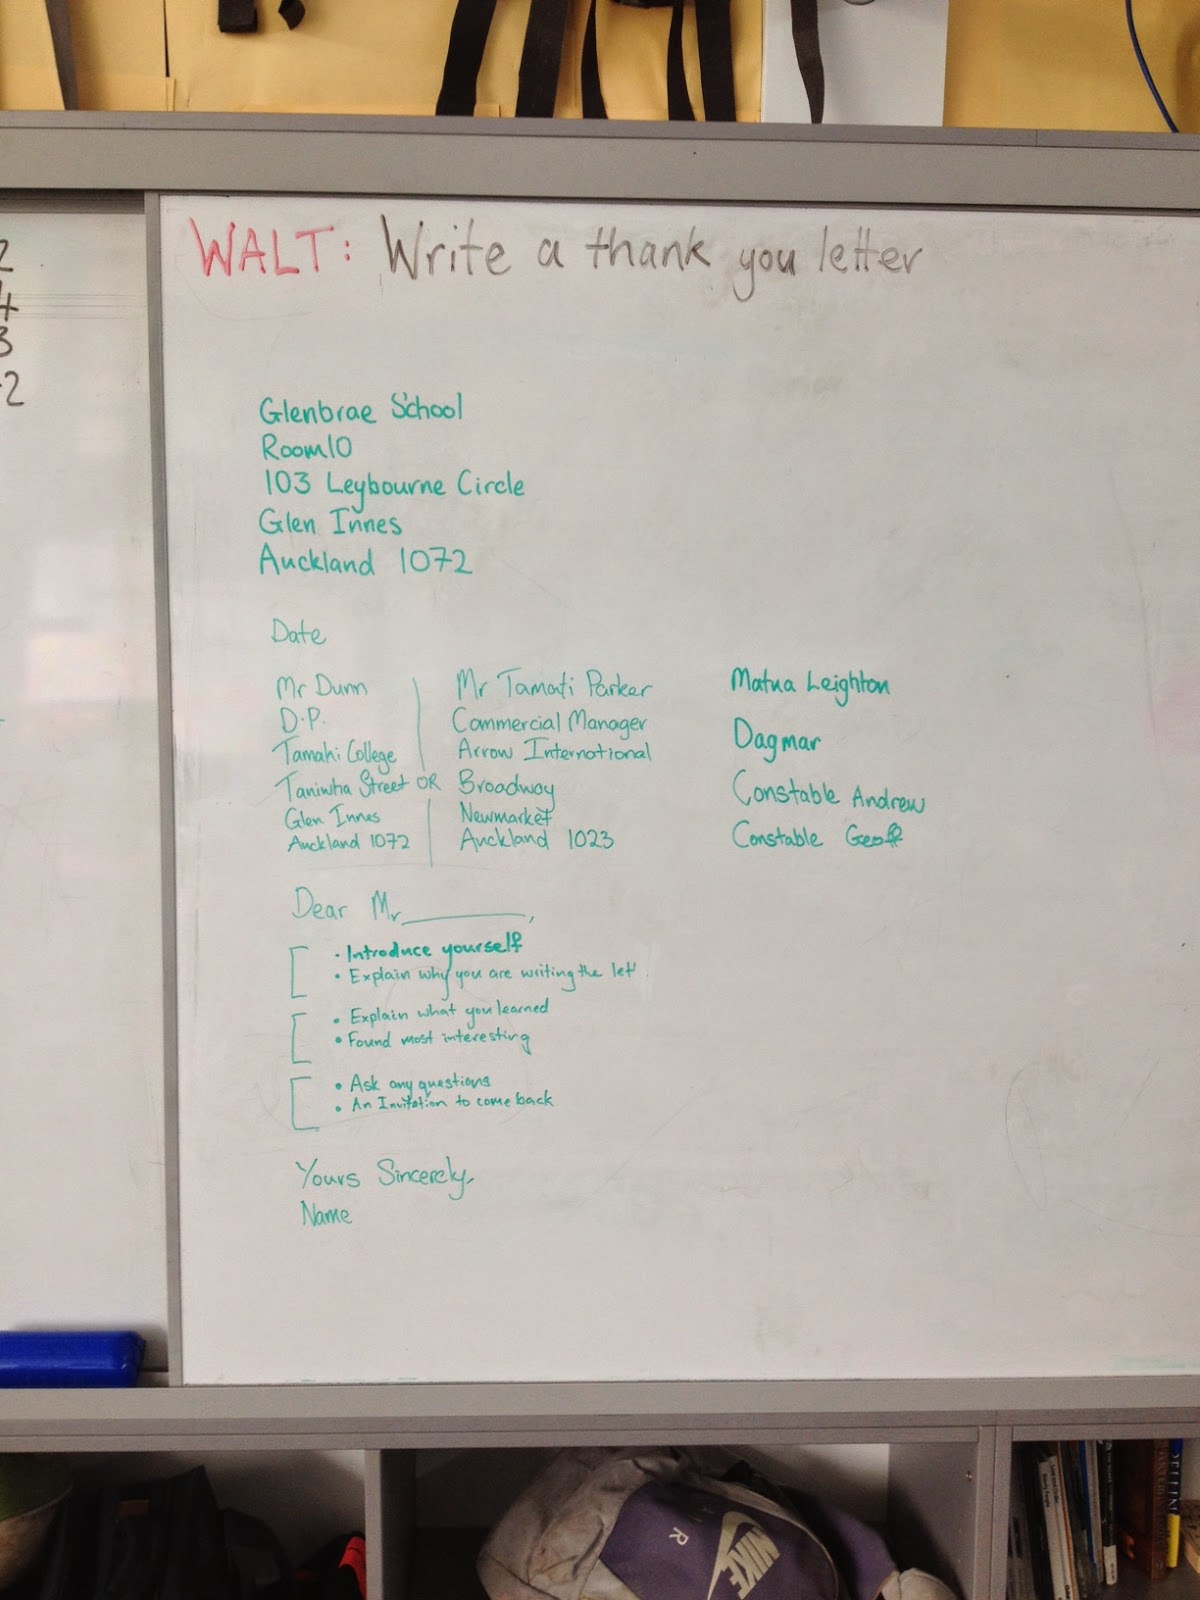 WALT: Write a thank you letter
2
4
3
2
Glenbrae School
Room 10
103 Leybourne Circle
Glen Innes
Auckland 1072
Date
Mr Dunn
D.P.
Tamaki College
Taniwha Street
Glen Innes
Auckland 1072
OR
Mr Tamati Parker
Commercial Manager
Arrow International
Broadway
Newmarket
Auckland 1023
Matua Leighton
Dagmar
Constable Andrew
Constable Geoff
Dear Mr__________,
• Introduce yourself
• Explain why you are writing the let
• Explain what you learned
• Found most interesting
• Ask any questions
• An Invitation to come back
Yours Sincerely,
Name
NIKE
R